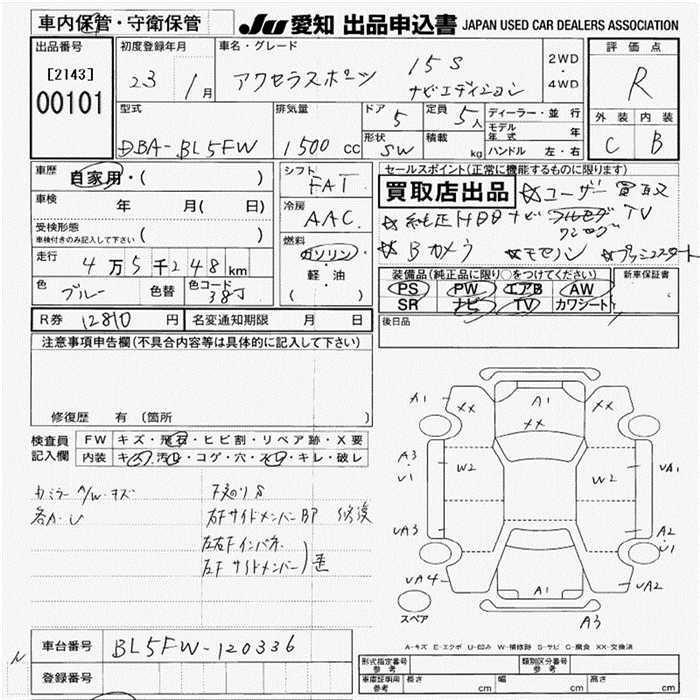 車内保管・守衛保管
JU 愛知 出品申込書 JAPAN USED CAR DEALERS ASSOCIATION
出品番号
[2143]
00101
初度登録年月
23 1月
車名・グレード
アクセラスポーツ 15S
ナビエディション
2WD
・
4WD
評価点
R
外装 内装
C B
型式
DBA-BL5FW
排気量
1500 cc
ドア
5
定員
5人
形状
SW
積載
kg
ディーラー・並行
モデル年式 年
ハンドル 左・右
車歴
自家用・( )
車検
年 月( 日)
受検形態
車検付きのみ記入して下さい ( )
走行
4万5千248km
色
ブルー
色替
色コード
38J
シフト
FAT
冷房
AAC
燃料
ガソリン・
軽・油
( )
セールスポイント(正常に機能するものに限ります)
買取店出品 ☆ユーザー買取
☆純正HDDナビ フルセグTV
ワンセグ
☆Bカメラ ☆プッシュスタート
装備品(純正品に限り○をつけてください)
PS PW エアB AW
SR ナビ TV カワシート
新車保証書
後日品
R券 12810 円
名変通知期限 月 日
注意事項申告欄(不具合内容等は具体的に記入して下さい)
修復歴 有 〔箇所
検査員
記入欄
FW キズ・飛石・ヒビ割・リペア跡・X要
内装 キズ・汚れ・コゲ・穴・スレ・キレ・破レ
カミラー A/W・キズ
各カ・U
下廻りS
右FサイドメンバーBP 修復
左右Fインパネ
左Fサイドメンバー
A1 XX A1 XX A1
A3 U1 W2 W2 UA1
UA3 A2 U1
UA4 A1 UA2
スペア A3
A-キズ E-エクボ U-凹み W-補修跡 S-サビ C-腐食 XX-交換済
車台番号 BL5FW-120336
登録番号
型式指定番号 参考
類別区分番号 参考
車庫証明用 参考 長さ cm 幅 cm 高さ cm